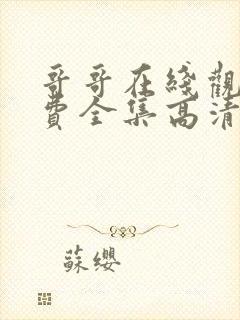 哥哥在綫觀
費全集高清
蘇纓